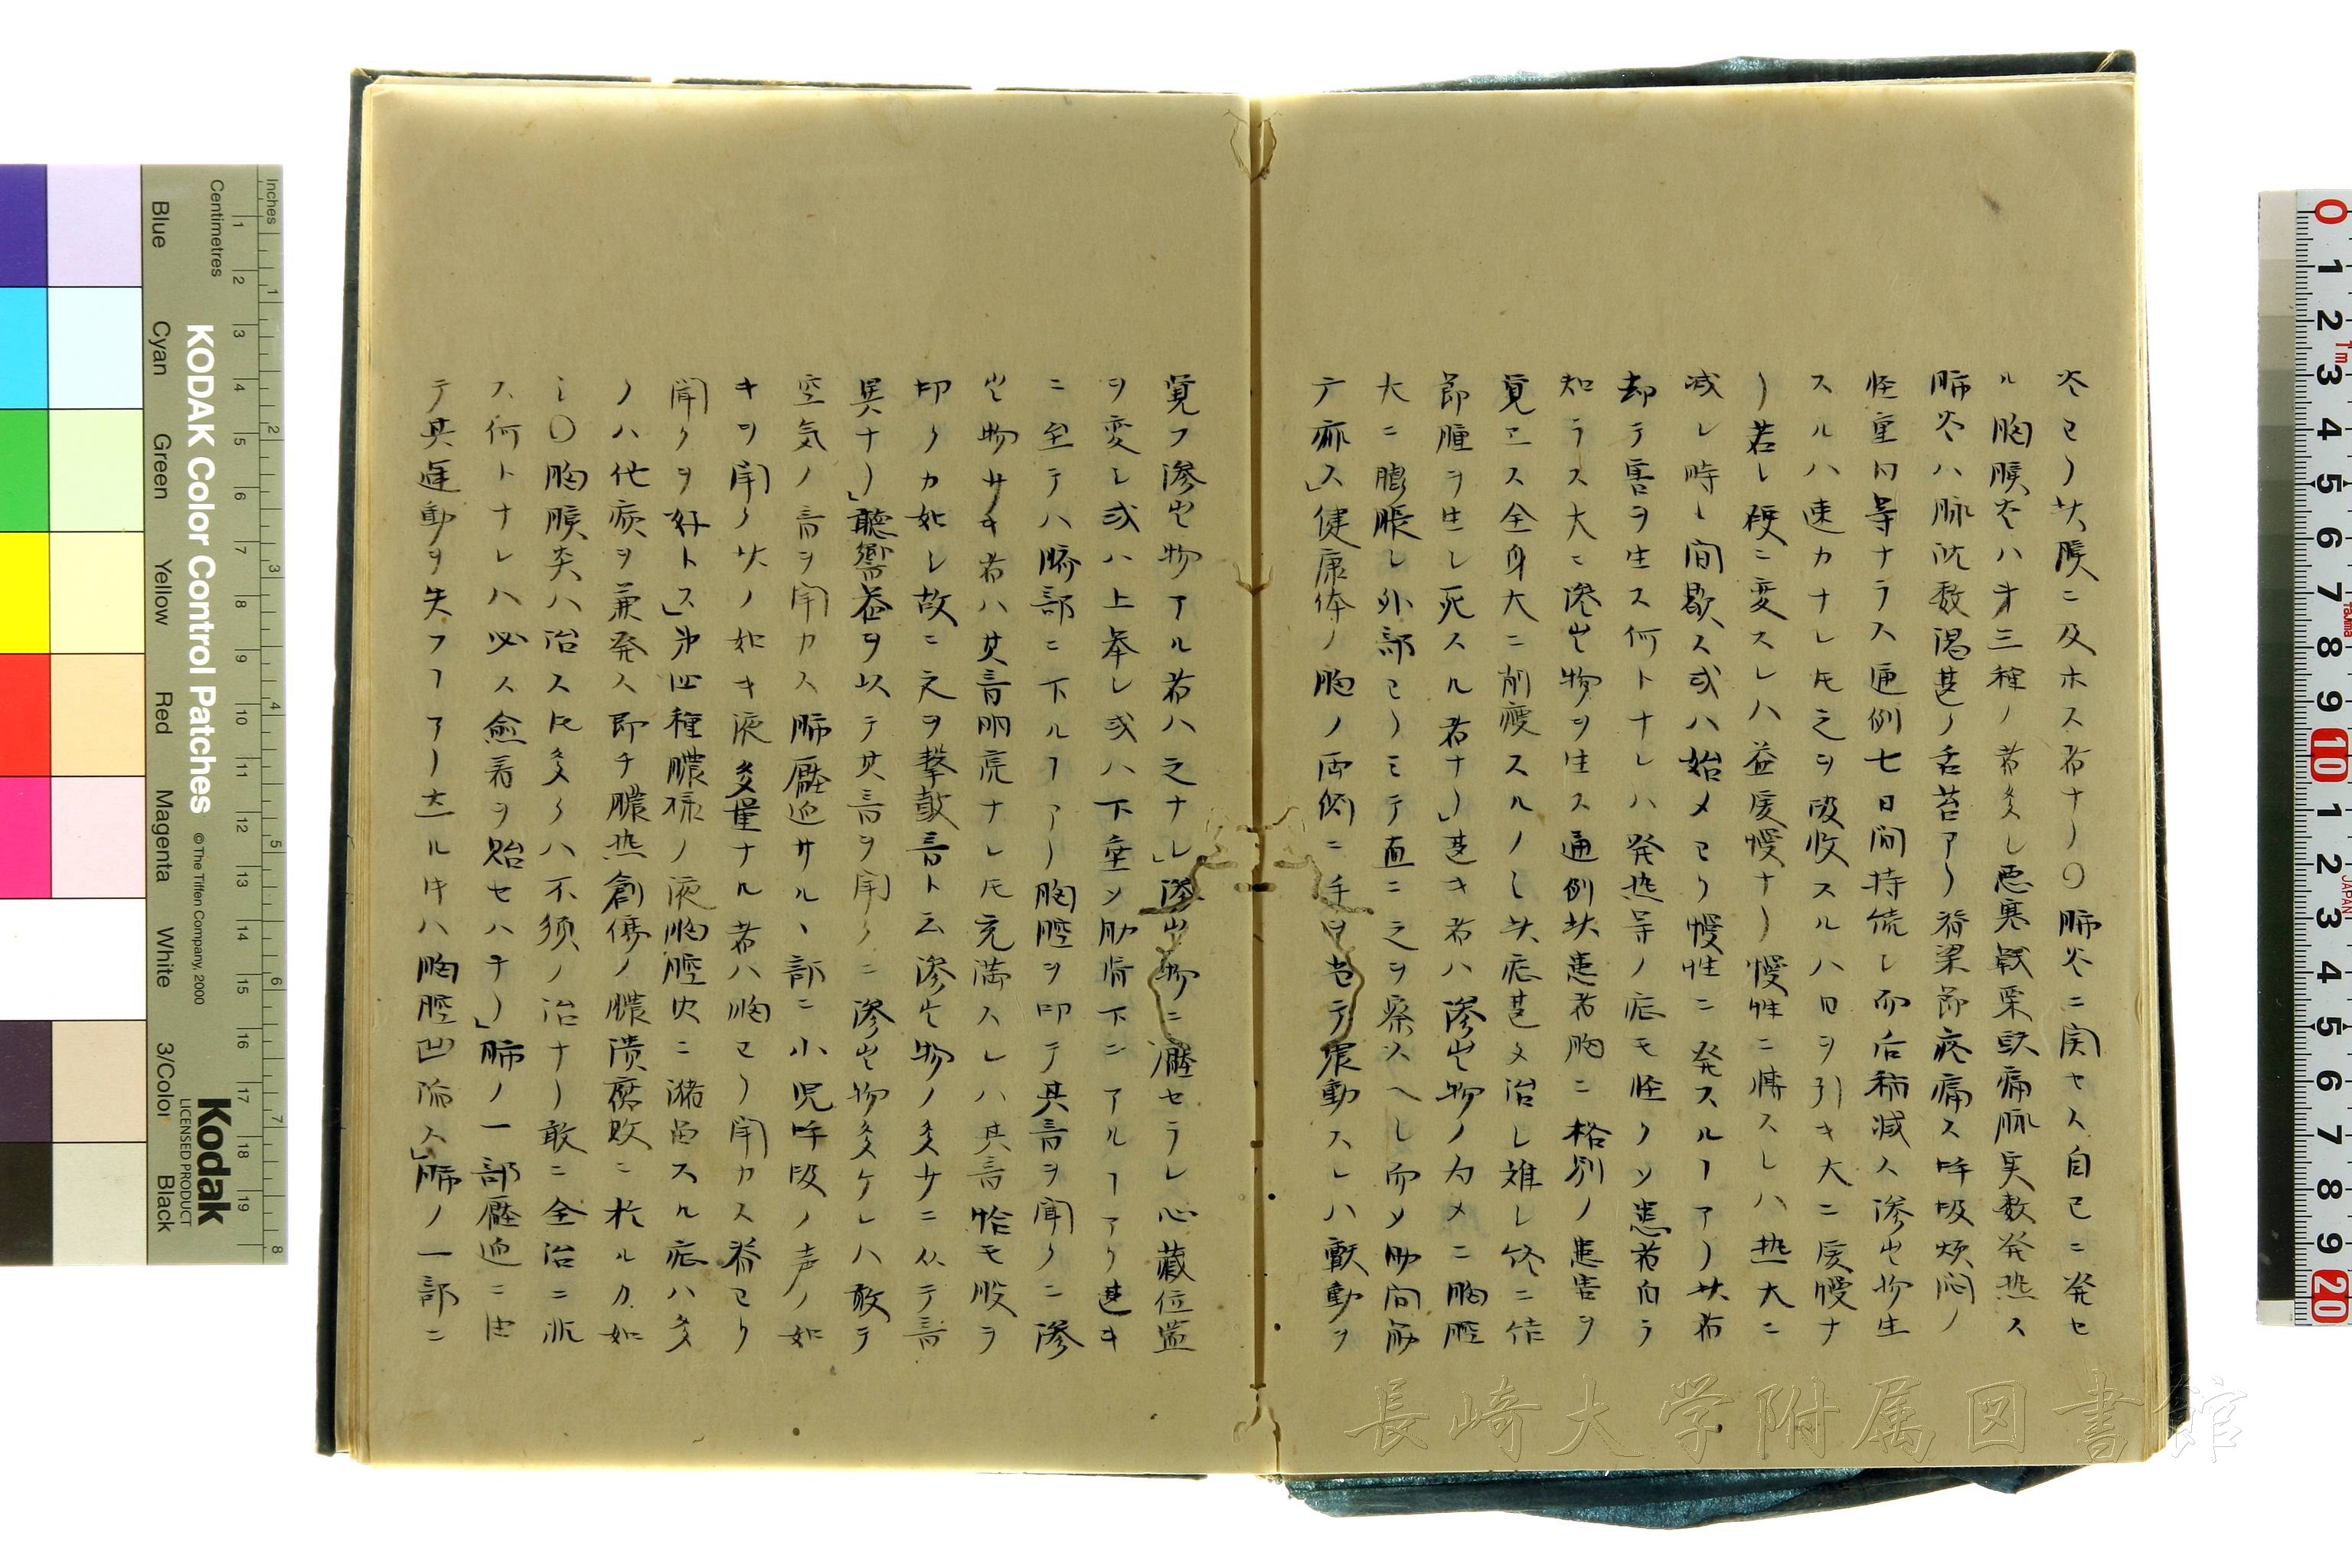 炎ヨリ其膜ニ及ホス者ナリ〇肺炎ニ関セス自己ニ発セ
ル胸膜炎ハ才三種ノ者多シ悪寒戦栗頭痛脈実数発熱ス
肺炎ハ脉沈数渇甚ノ舌苔アリ脊梁節疼痛ス呼吸煩悶ノ
軽重同等ナラス通例七日間持続し而后稍減ス滲出物生
スルハ速カナレ𪜈之ヲ吸收スルハ日ヲ引キ大ニ緩慢ナ
リ若し硬ニ変スレハ益緩慢ナリ慢性ニ轉スレハ熱大ニ
减レ時し間歇ス或ハ始メヨリ慢性ニ発スルヿアリ其者
却テ害ヲ生ス何トナレハ発熱等ノ症モ軽クシ患者自ラ
知ラス大ニ滲出物ヲ生ス通例其患者胸ニ格別ノ患害ヲ
覚エス全身大ニ削瘦スルノミ其症甚タ治し雖し終ニ作
節腫ヲ生し死スル者ナリ」甚キ者ハ滲出物ノ为メニ胸腔
大ニ膨脹し外部ヨリミテ直ニ之ヲ察スヘし而メ肋間筋
テ麻ス」健康体ノ胸ノ両側ニ手ヲ当テ振動スレハ震動ヲ
覚フ滲出物アル者ハ之ナし」滲出物ニ壓セラレ心蔵位置
ヲ変し或ハ上挙し或ハ下垂シ肋骨下ニアルヿアリ甚キ
ニ至テハ臍部ニ下ルヿアリ胸腔ヲ叩テ其音ヲ聞クニ滲
出物サキ者ハ其音明亮ナレ𪜈充満スレハ其音恰モ股ヲ
叩クカ如し故ニ之ヲ撃鼓音ト云滲出物ノ多サニ仍テ音
異ナリ」聴響器ヲ以テ其音ヲ聞クニ滲出物多ケレハ敢テ
空気ノ音ヲ聞カス肺壓迫サルヽ部ニ小児呼吸ノ声ノ如
キヲ聞ク其ノ如キ液多量ナル者ハ胸ヨリ聞カス脊ヨリ
聞クヲ好トス」第四種膿様ノ液胸腔内ニ瀦畄スル症ハ多
クハ他症ヲ兼発ス即チ膿熱創傷ノ膿潰腐敗ニ於ルカ如
し〇胸膜炎ハ治ス𪜈多クハ不須ノ治ナリ敢ニ全治ニ非
ス何トナレハ必ス愈着ヲ貽セハナリ」肺ノ一部壓迫ニ由
テ其運動ヲ失フヿアリ去ル𪜈ハ胸腔凹陥ス」肺ノ一部ニ
長崎大学附属図書館
KODAK Color Control Patches
© The Tiffen Company, 2000
Kodak
LICENSED PRODUCT
Inches
Centimetres
Blue
Cyan
Green
Yellow
Red
Magenta
White
3/Color
Black